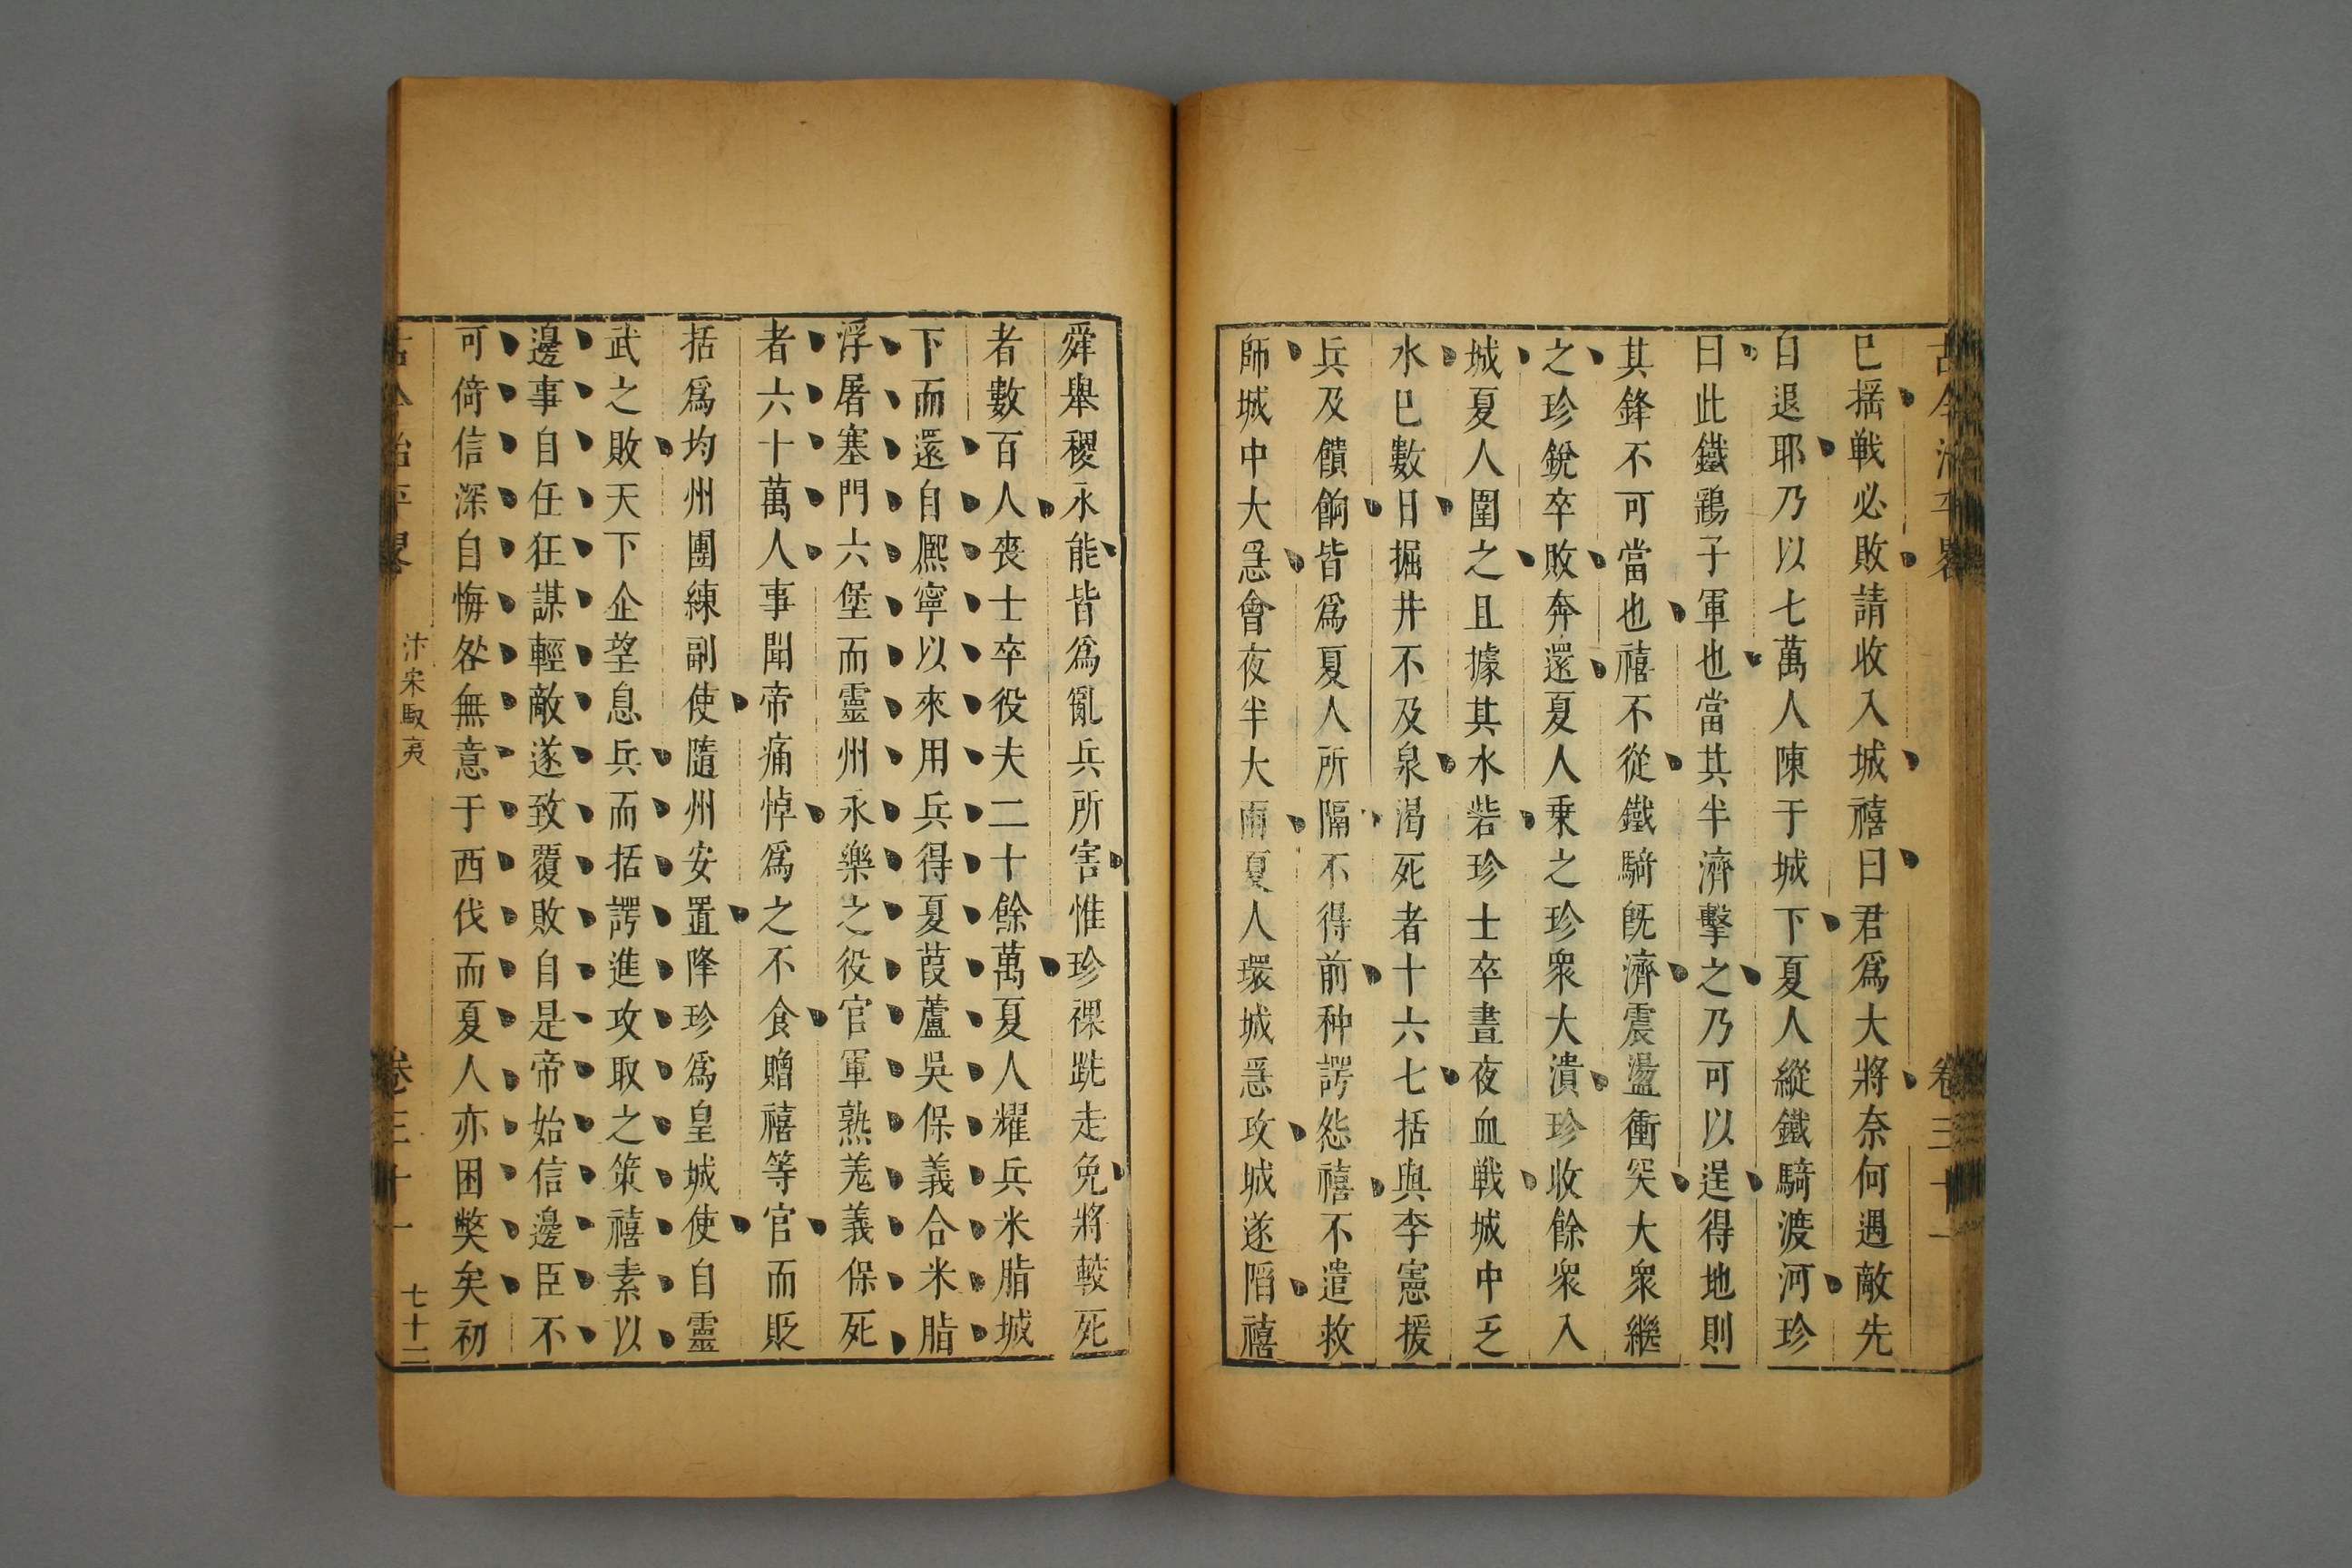 古今治平畧 卷三十一
已揺戦必敗請收入城禧曰君爲大將奈何遇敵先
自退耶乃以七萬人陳于城下夏人縱鐵騎渡河珍
曰此鐵鷂子軍也當其半濟擊之乃可以逞得地則
其鋒不可當也禧不從鐵騎旣濟震盪衝突大衆繼
之珍銳卒敗奔還夏人乗之珍衆大潰珍收餘衆入
城夏人圍之且據其水砦珍士卒晝夜血戦城中乏
水已數日掘井不及泉渴死者十六七括與李憲援
兵及饋餉皆爲夏人所隔不得前种諤怨禧不遣救
師城中大急會夜半大雨夏人環城急攻城遂陷禧
舜舉稷永能皆爲亂兵所害惟珍裸跣走免將較死
者數百人喪士卒役夫二十餘萬夏人耀兵米脂城
下而還自熈寧以來用兵得夏葭蘆吳保義合米脂
浮屠塞門六堡而靈州永樂之役官軍熟羗義保死
者六十萬人事聞帝痛悼爲之不食贈禧等官而貶
括爲均州團練副使隨州安置降珍爲皇城使自靈
武之敗天下企望息兵而括諤進攻取之策禧素以
邊事自任狂謀輕敵遂致覆敗自是帝始信邊臣不
可倚信深自悔咎無意于西伐而夏人亦困獘矣初
古今治平畧 汴宋馭夷 卷三十一 七十二